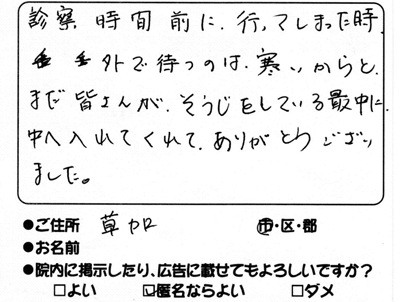 診察時間前に、行ってしまった時、
外で待つのは、寒いからと、
まだ皆さんが、そうじをしている最中に、
中へ入れてくれて、ありがとうござい
ました。
●ご住所 草加 市・区・郡
●お名前
●院内に掲示したり、広告に載せてもよろしいですか？
□よい ☑匿名ならよい □ダメ